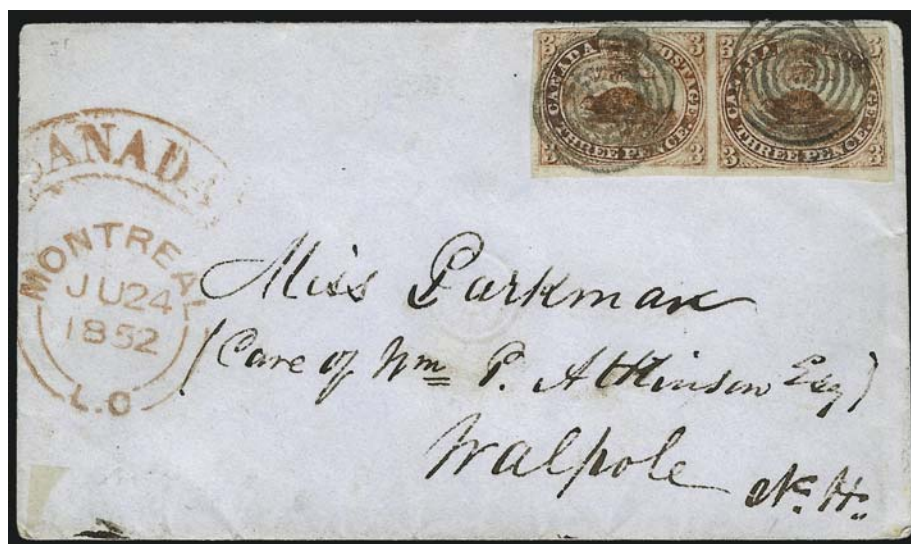 3 CANADA POSTAGE 3
THREE PENCE.
3 3
3 CANADA POSTAGE 3
THREE PENCE.
3 3
CANADA
MONTREAL
JU 24
1852
L.C
Miss Parkman
(Care of Wm P. Atkinson Esq)
Walpole
N. H.